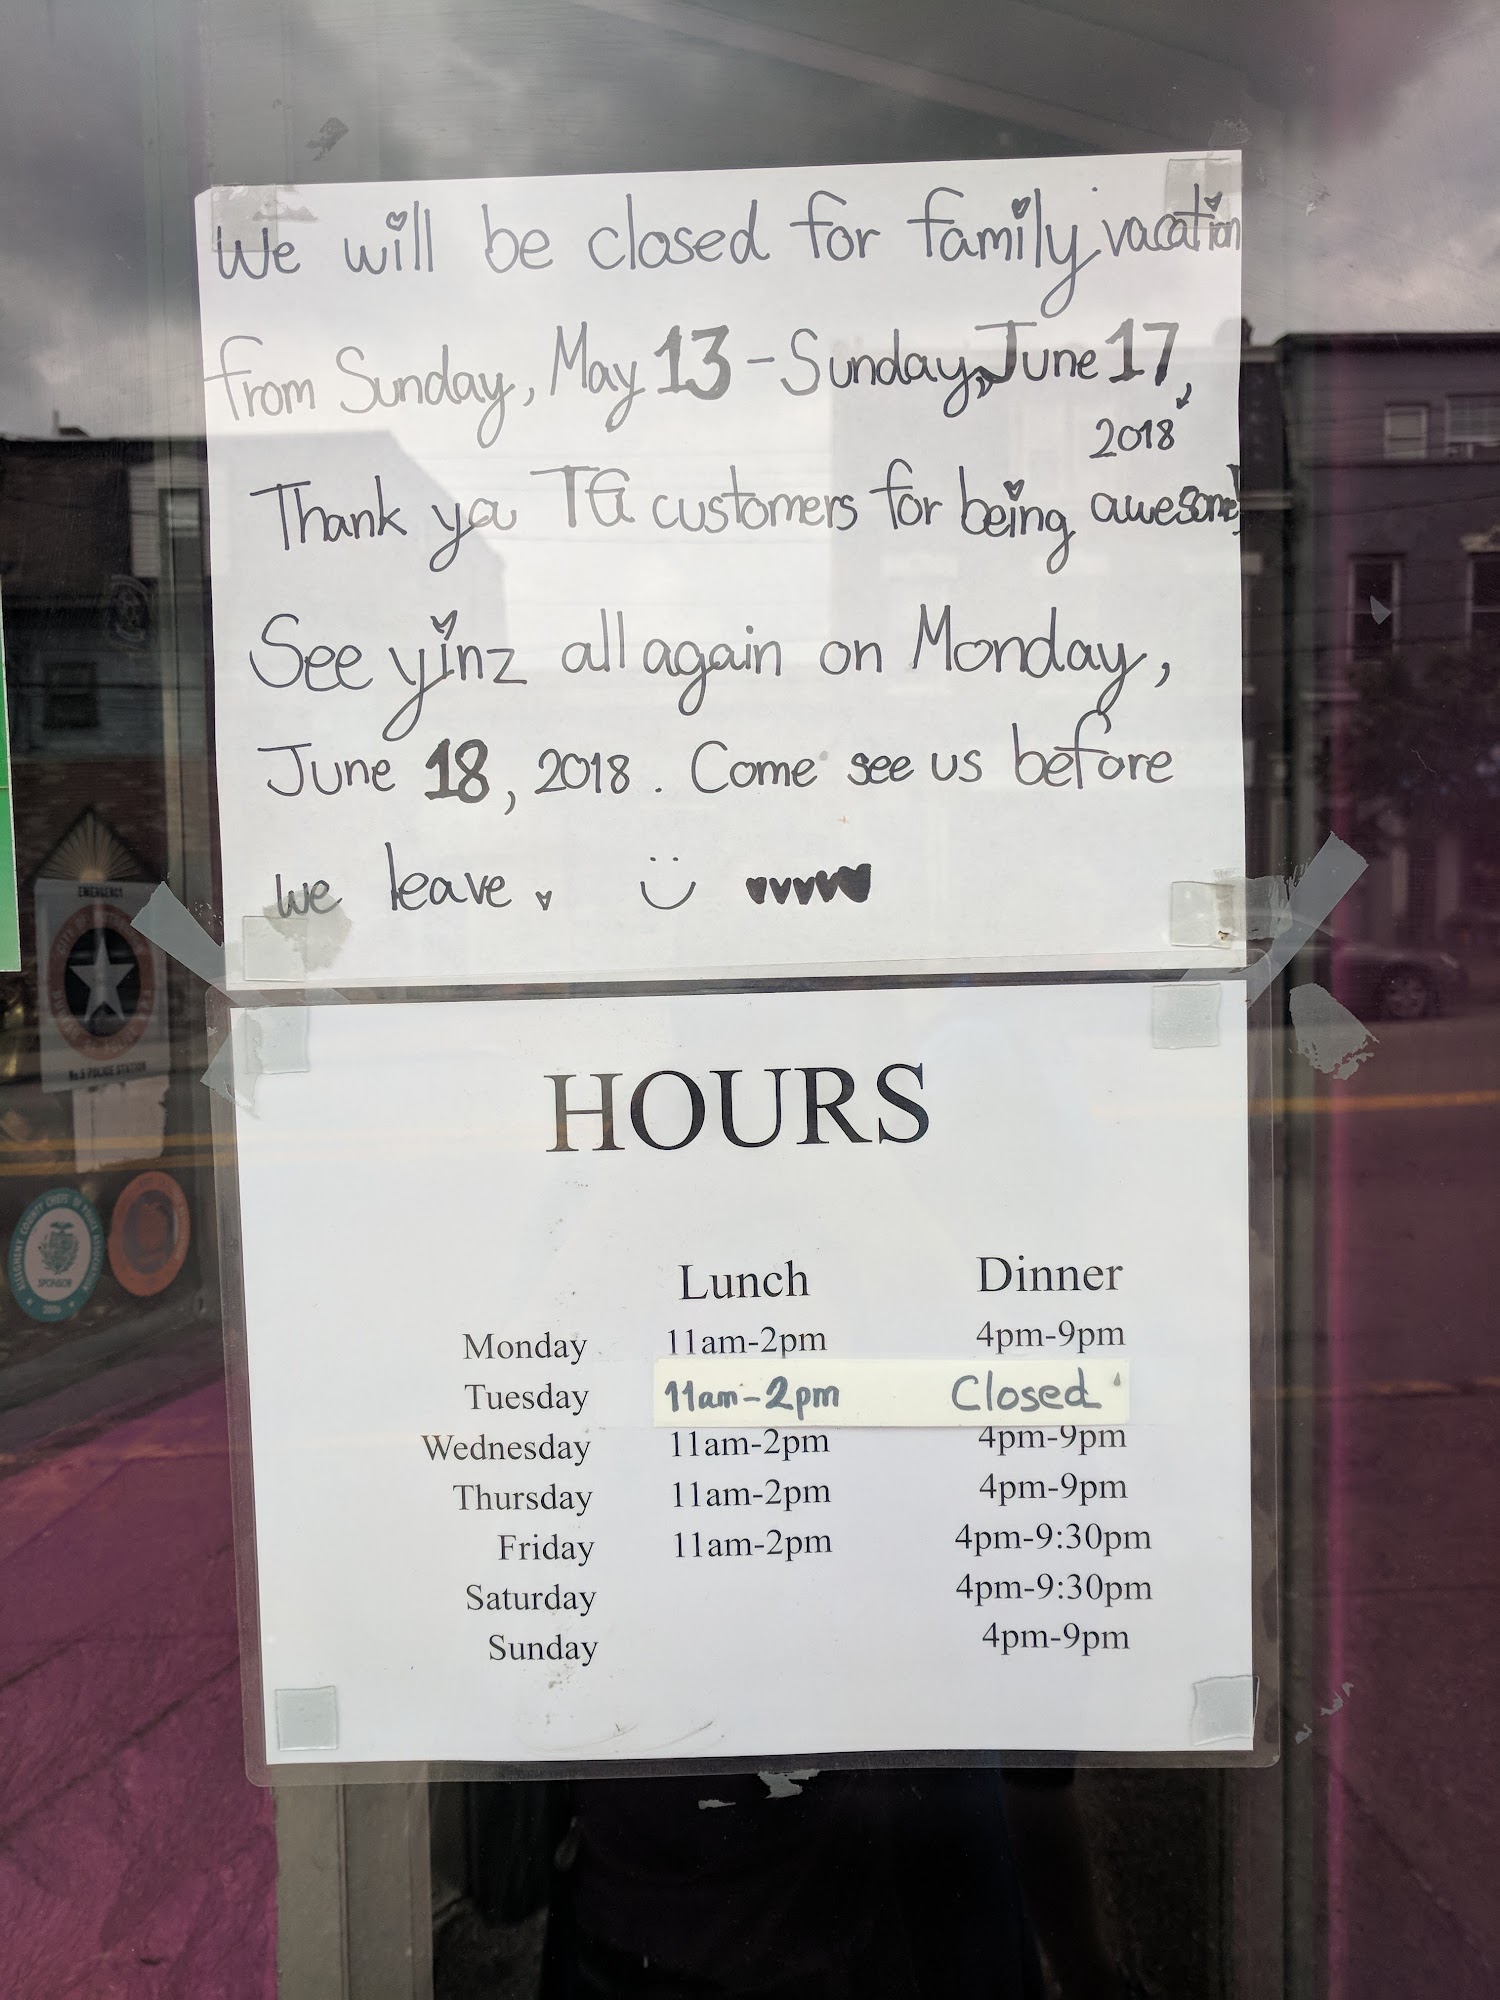 We will be closed for family vacation
from Sunday, May 13 - Sunday, June 17,
2018
Thank ya TG customers for being awesome!
See yinz all again on Monday,
June 18, 2018. Come see us before
we leave.
HOURS
Lunch Dinner
Monday 11am-2pm 4pm-9pm
Tuesday 11am-2pm Closed
Wednesday 11am-2pm 4pm-9pm
Thursday 11am-2pm 4pm-9pm
Friday 11am-2pm 4pm-9:30pm
Saturday 4pm-9:30pm
Sunday 4pm-9pm
EMERGENCY
No.5 POLICE STATION
ALLEGHENY COUNTY CHIEFS OF POLICE ASSOCIATION
SPONSOR